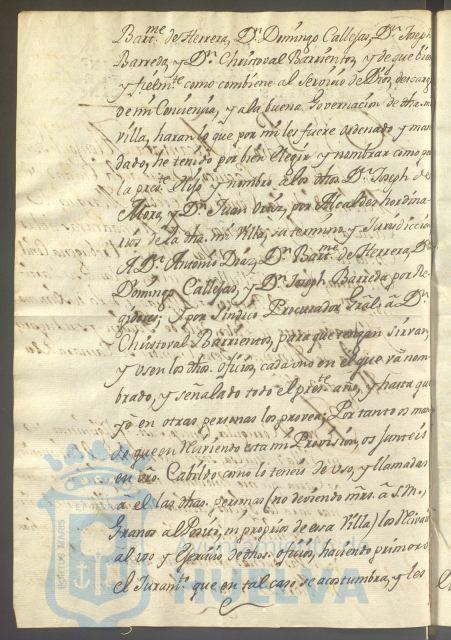 Bartme. de Herrera, Dn. Domingo Callejas, Dn. Joseph
Barreda, y Dn. Christoval Barrientos, y de que bien
y fielmte. como combiene al Servicio de Dios, descargo
de mi Conciencia, y a la buena Governacion de dha. mi
villa, haran lo que por mi les fuere ordenado y man
dado, he tenido por bien elegir y nombrar como por
la prete. elijo y nombro a los dhos. Dn. Joseph de
Mora, y Dn. Juan por Alcaldes hordina
rios de la dha. mi Villa, su termino y Jurisdiccion
A Dn. Antonio Diaz, Dn. Bartme. de Herrera, Dn.
Domingo Callejas, y Dn. Joseph Barreda por Re
gidores; y por Sindico Procurador Gral. a Dn.
Christoval Barrientos, para que tengan, sirvan,
y usen los dhos. oficios, cada uno en el que va nom
brado, y señalado todo el preste. año, y hasta que
yo en otras personas los provea; Por tanto os man
do que en reciviendo esta mi Provision, os junteis
en vro. Cabildo como lo teneis de uso, y llamadas
a el las dhas. personas (no deviendo mrs. a S.M.,
Granos al Posito, ni propios de esa Villa) los recivais
al uso y exercicio de dhos. oficios, haciendo primero
el Juramto. que en tal caso se acostumbra, y les
PORTUS MARIS
HUELVA